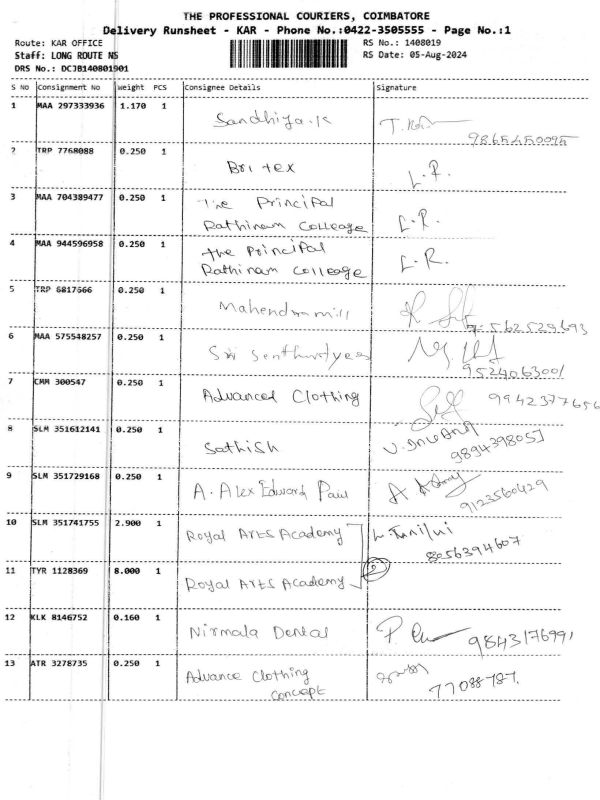 THE PROFESSIONAL COURIERS, COIMBATORE
Delivery Runsheet - KAR - Phone No.:0422-3505555 - Page No.:1
Route: KAR OFFICE RS No.: 1408019
Staff: LONG ROUTE NS RS Date: 05-Aug-2024
DRS No.: DCJB140801901
S No Consignment No Weight PCS Consignee Details Signature
1 MAA 297333936 1.170 1 Sandhiya.K
9865450095
2 TRP 7768088 0.250 1 Britex L.R.
3 MAA 704389477 0.250 1 The Principal
Rathinam Colleage L.R.
4 MAA 944596958 0.250 1 the Principal
Rathinam Colleage L.R.
5 TRP 6817666 0.250 1 Mahendramill
9562529693
6 MAA 575548257 0.250 1 Sri
9524063001
7 CMM 300547 0.250 1 Advanced Clothing 9942377656
8 SLM 351612141 0.250 1 Sathish
9894398057
9 SLM 351729168 0.250 1 A. Alex Edward Paul
9123560429
10 SLM 351741755 2.900 1 Royal Arts Academy
8056394607
2
11 TYR 1128369 8.000 1 Royal Arts Academy
12 KLK 8146752 0.160 1 Nirmala Dental 9843176991
13 ATR 3278735 0.250 1 Advance Clothing
concept